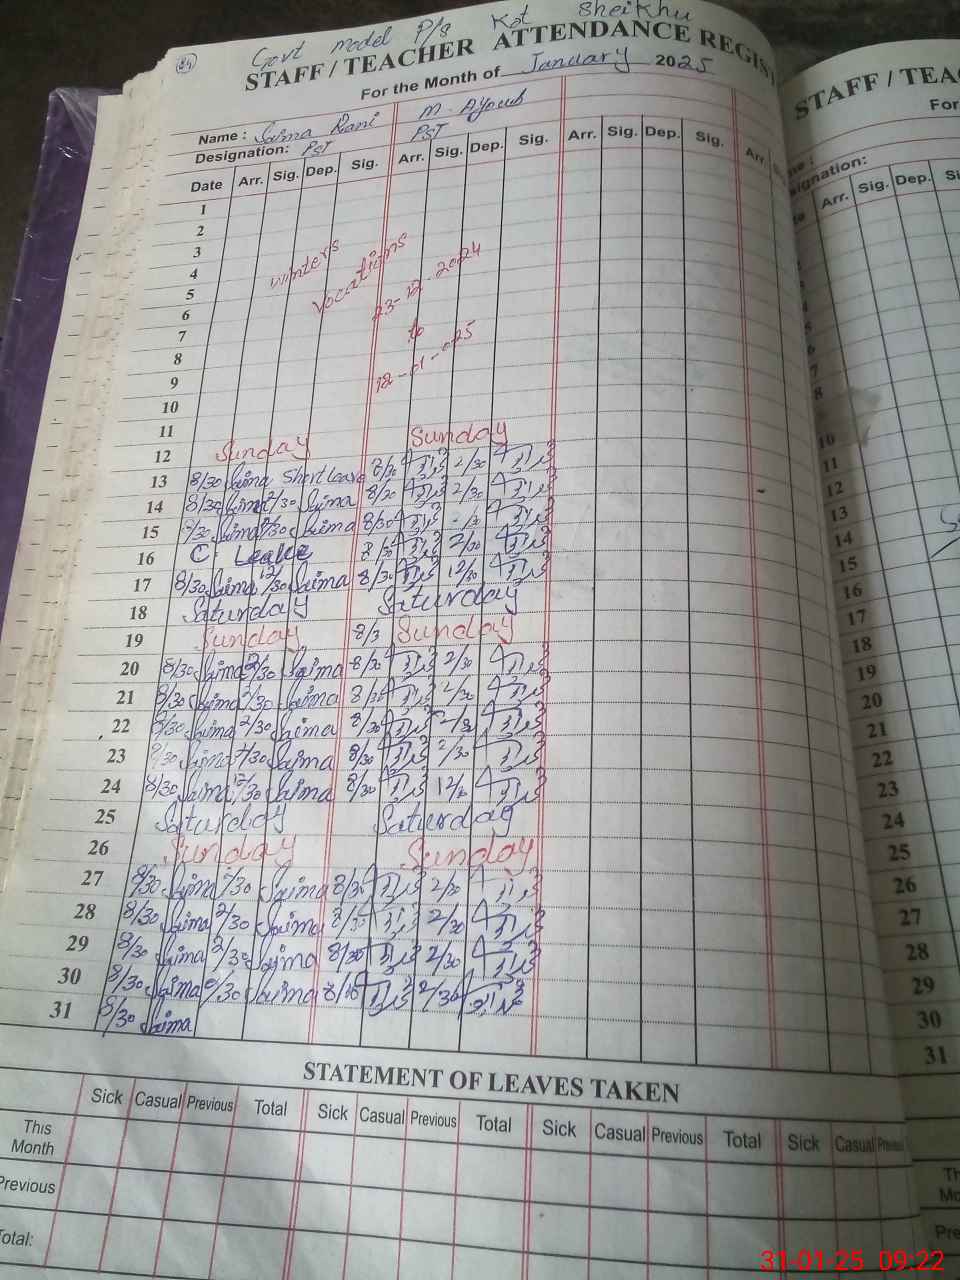 84
Govt model P/S Kot Sheikhu
STAFF / TEACHER ATTENDANCE REGIS
For the Month of January 2025
Name : Saima Rani M. Ayoub
Designation: PST PST
Date Arr. Sig. Dep. Sig. Arr. Sig. Dep. Sig. Arr. Sig. Dep. Sig. Arr.
1
2
3
4 winters
5 vocations
6 23-12-2024
7 to
8
9
10
11
12 Sunday Sunday
13 8/30 Saima Short leave 8/30 2/30
14 8/30 Saima 2/30 Saima 8/30 2/30
15 Saima Saima 8/30
16 C. Leave 8/30 2/30
17 8/30 Saima 12/30 Saima 8/30 12/30
18 Saturday Saturday
19 Sunday 8/3 Sunday
20 8/30 Saima 2/30 Saima 8/30 2/30
21 8/30 Saima 2/30 Saima 8/30 2/30
22 8/30 Saima 2/30 Saima 8/30
23 8/30 Saima 2/30 Saima 8/30 2/30
24 8/30 Saima 12/30 Saima 8/30 12/30
25 Saturday Saturday
26 Sunday Sunday
27 8/30 Saima 2/30 Saima 8/30 2/30
28 8/30 Saima 2/30 Saima 8/30 2/30
29 8/30 Saima 2/30 Saima 8/30 2/30
30 8/30 Saima 2/30 Saima 8/30 2/30
31 8/30 Saima
STATEMENT OF LEAVES TAKEN
Sick Casual Previous Total Sick Casual Previous Total Sick Casual Previous Total Sick Casual Previous
This Month
Previous
Total:
STAFF / TEAC
For
Arr. Sig. Dep.
10
11
12
13
14
15
16
17
18
19
20
21
22
23
24
25
26
27
28
29
30
31
31-01-25 09:22